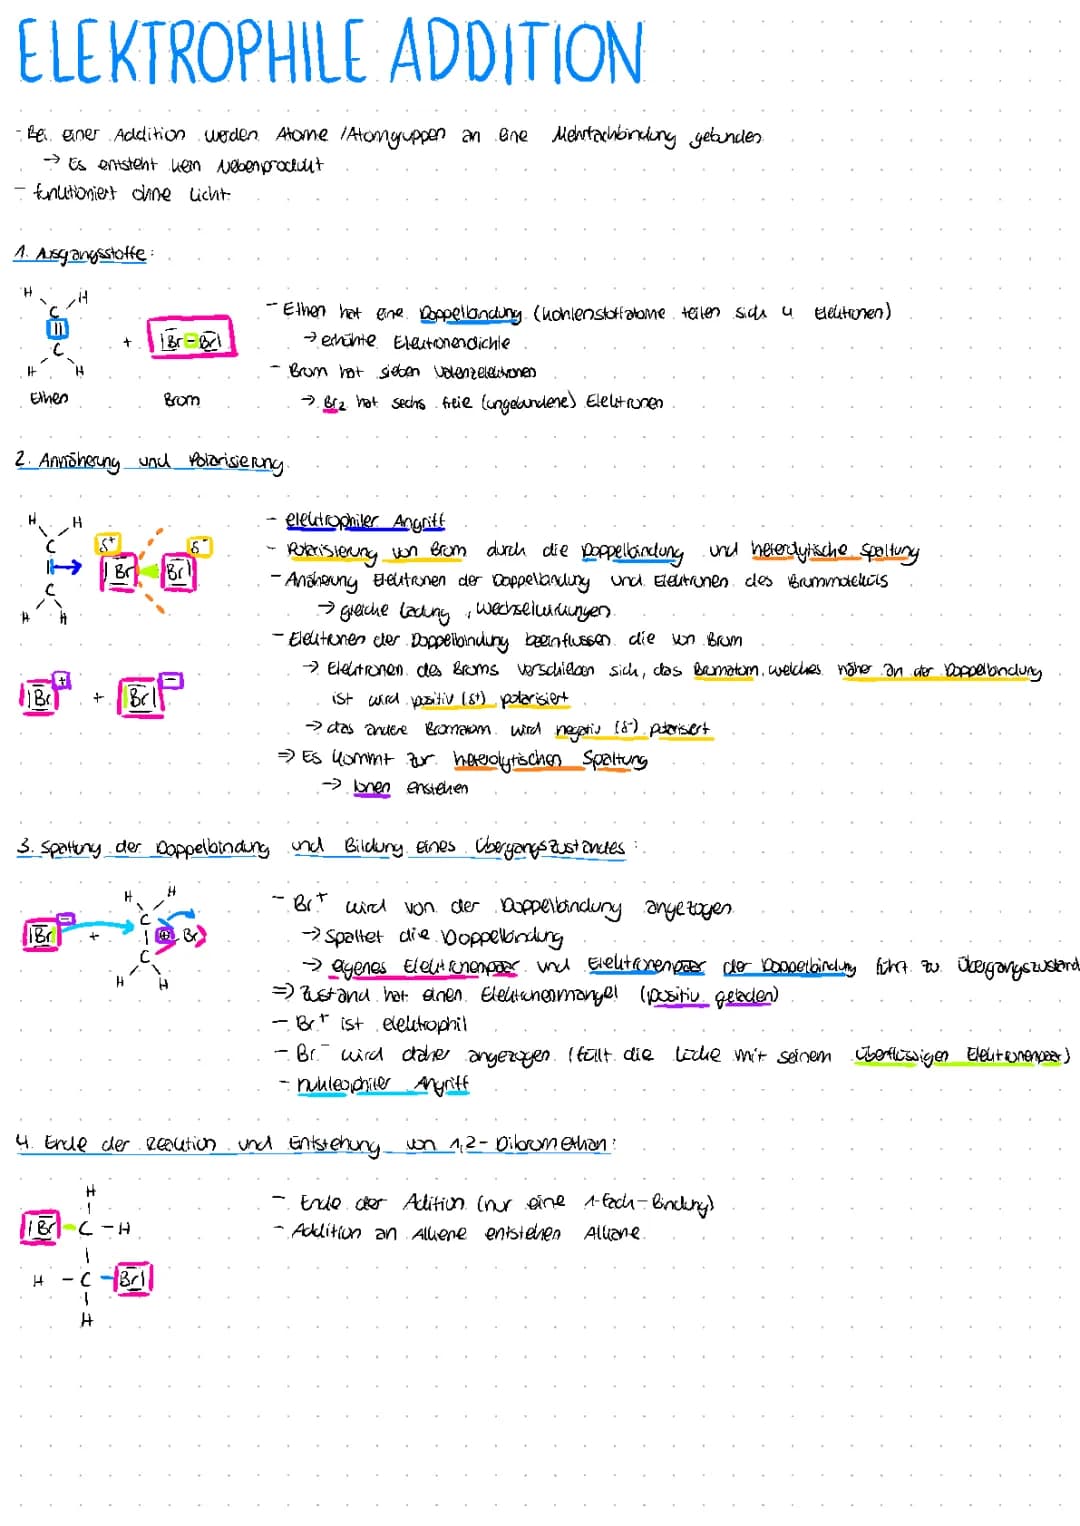 ELEKTROPHILE ADDITION
- Bei einer Addition werden Atome / Atomgruppen an eine Mehrfachbindung gebunden
→ Es entsteht kein Nebenprodukt
- funktioniert ohne Licht
1. Ausgangsstoffe:
H H
C
||
C
H H
+ |Br-Br|
Ethen Brom
- Ethen hat eine Doppelbindung (Kohlenstoffatome teilen sich 4 Elektronen)
→ erhöhte Elektronendichte
- Brom hat sieben Valenzelektronen
→ Br2 hat sechs freie (ungebundene) Elektronen
2. Annäherung und Polarisierung
H H
C δ+ δ-
|| |Br Br|
C
H H
|Br + + Br| -
- elektrophiler Angriff
- Polarisierung von Brom durch die Doppelbindung und heterolytische Spaltung
- Annäherung Elektronen der Doppelbindung und Elektronen des Brommoleküls
→ gleiche Ladung, Wechselwirkungen
- Elektronen der Doppelbindung beeinflussen die von Brom
→ Elektronen des Broms verschieben sich, das Bromatom, welches näher an der Doppelbindung
ist wird positiv (δ+) polarisiert
→ das andere Bromatom wird negativ (δ-) polarisiert
⇒ Es kommt zur heterolytischen Spaltung
→ Ionen enstehen
3. Spaltung der Doppelbindung und Bildung eines Übergangszustandes:
H H
C
|Br| - + | ⊕ Br
C
H H
- Br+ wird von der Doppelbindung angezogen
→ Spaltet die Doppelbindung
→ eigenes Elektronenpaar und Elektronenpaar der Doppelbindung führt zu Übergangszustand
⇒ Zustand hat einen Elektronenmangel (positiv geladen)
- Br+ ist elektrophil
- Br- wird daher angezogen (füllt die Lücke mit seinem überflüssigen Elektronenpaar)
- nukleophiler Angriff
4. Ende der Reaktion und Entstehung von 1,2-Dibromethan:
H
|
|Br - C - H
|
H - C - Br|
|
H
- Ende der Adition (nur eine 1-fach-Bindung)
- Addition an Alkene entstehen Alkane